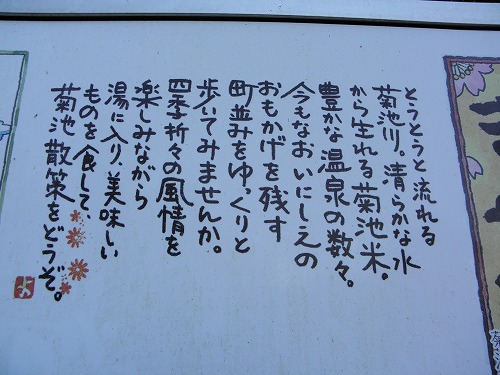 とうとうと流れる
菊池川。清らかな水
から生れる菊池米。
豊かな温泉の数々。
今もなおいにしえの
おもかげを残す
町並みをゆっくりと
歩いてみませんか。
四季折々の風情を
楽しみながら
湯に入り、美味しい
ものを食して、
菊池散策をどうぞ。